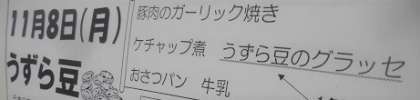 11月8日(月)
うずら豆
豚肉のガーリック焼き
ケチャップ煮 うずら豆のグラッセ
おさつパン 牛乳